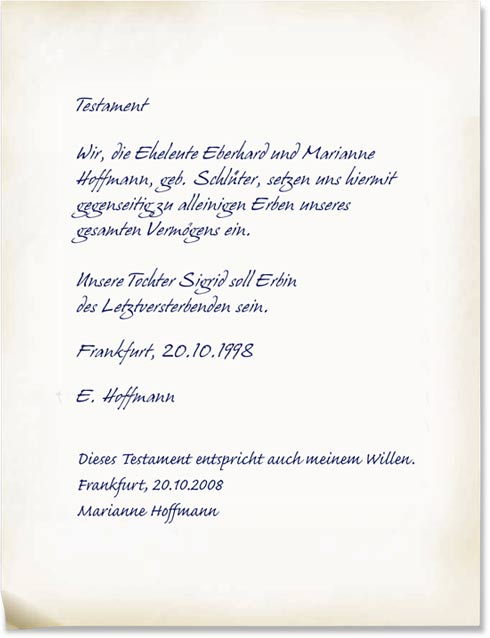 Testament
Wir, die Eheleute Eberhard und Marianne
Hoffmann, geb. Schlüter, setzen uns hiermit
gegenseitig zu alleinigen Erben unseres
gesamten Vermögens ein.
Unsere Tochter Sigrid soll Erbin
des Letztversterbenden sein.
Frankfurt, 20.10.1998
E. Hoffmann
Dieses Testament entspricht auch meinem Willen.
Frankfurt, 20.10.2008
Marianne Hoffmann